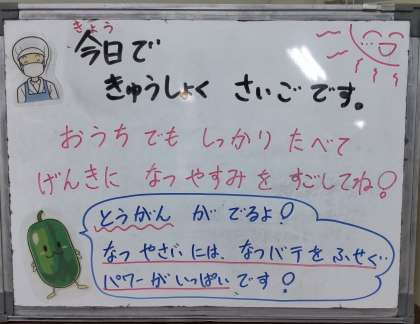 きょう
今日で
きゅうしょく さいごです。
おうちでも しっかり たべて
げんきに なつやすみを すごしてね!
とうがん が でるよ!
なつやさいには、なつバテを ふせぐ
パワーが いっぱい です!